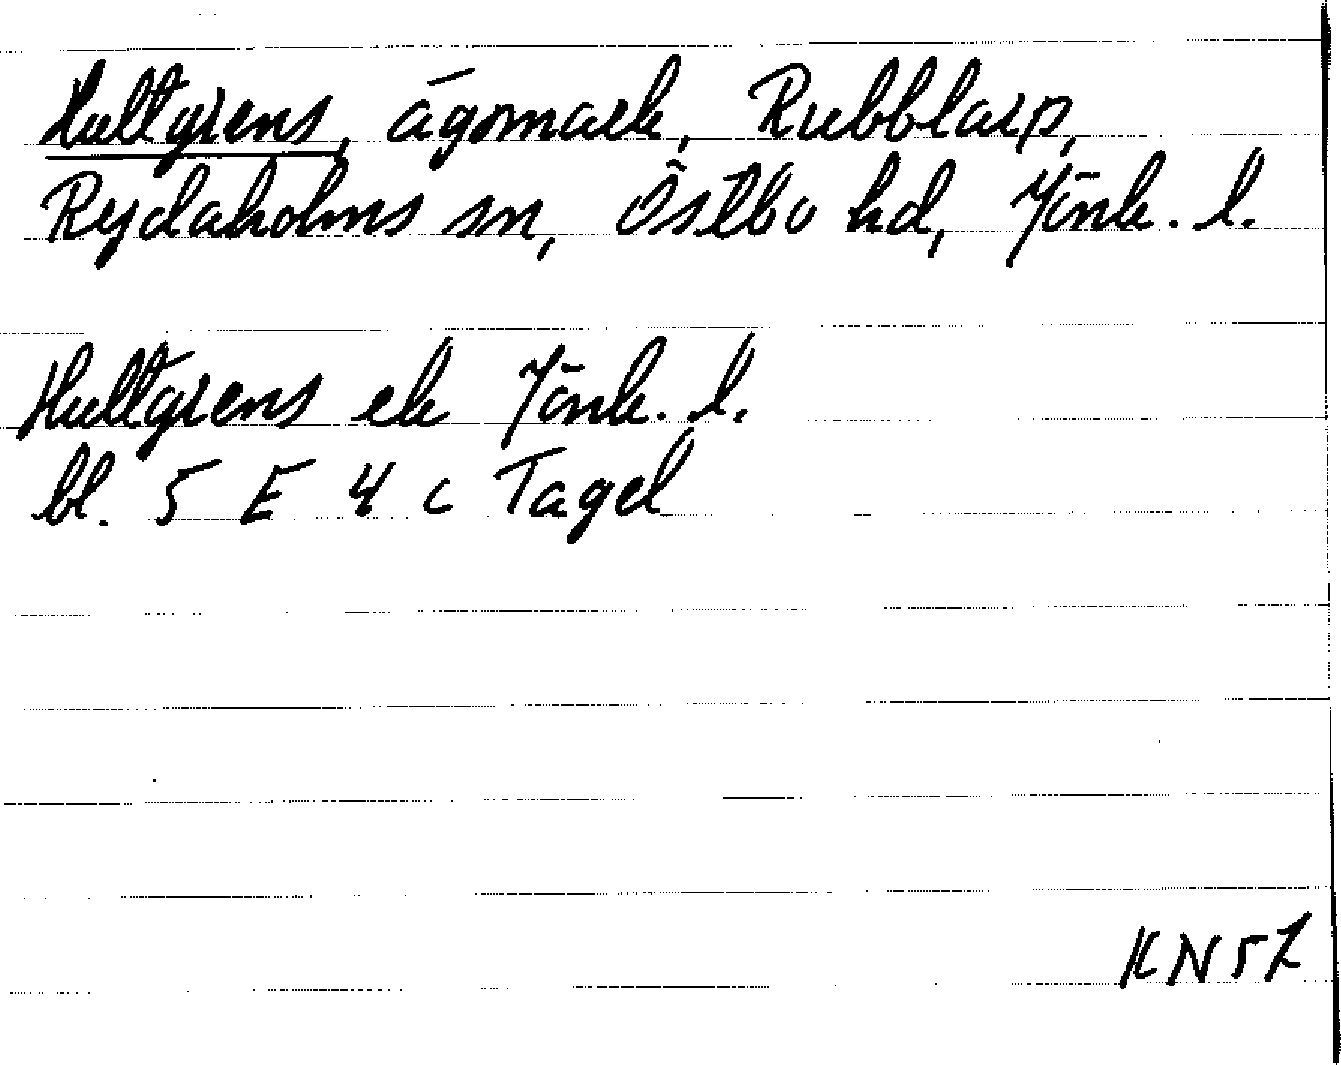 Hultgrens, ägomark, Rubblarp,
Rydaholms sn, Östbo hd, Jönk. l.
Hultgrens ek Jönk. l.
bl. 5 E 4 c Tagel
KN57